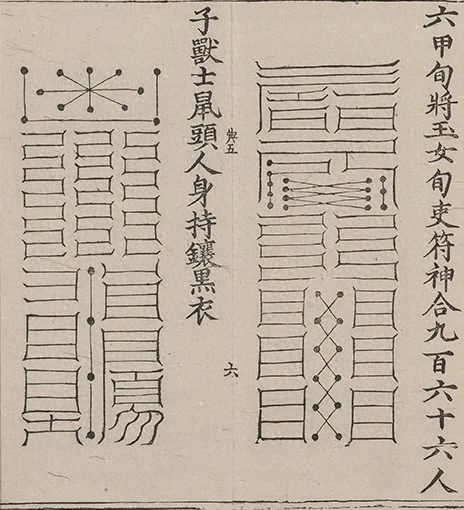 六甲旬將玉女旬吏符神合九百六十六人
典五
六
子獸士鼠頭人身持鑲黑衣